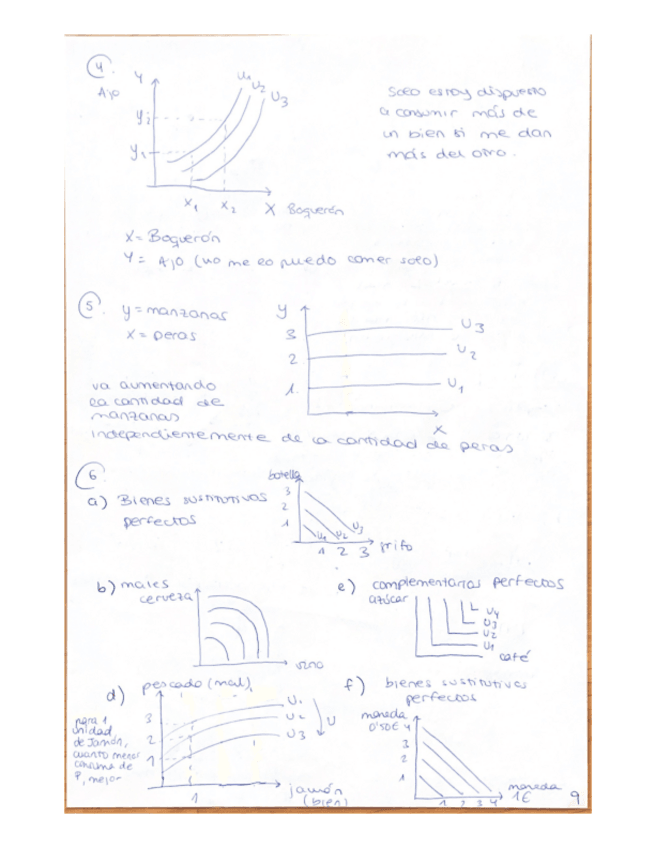 4.
Y
Ajo
y2
y1
U1
U2
U3
x1 x2 X Boquerón
Solo estoy dispuesto
a consumir más de
un bien si me dan
más del otro.
X = Boquerón
Y = Ajo (no me lo puedo comer solo)
5. y = manzanas
x = peras
va aumentando
la cantidad de
manzanas
independientemente de la cantidad de peras
y
3
2
1
U3
U2
U1
x
6
a) Bienes sustitutivos
perfectos
botella
3
2
1
U1 U2 U3
1 2 3 grifo
b) males
cerveza
vino
e) complementarios perfectos
azúcar
U4
U3
U2
U1
café
d) pescado (mal)
para 1
unidad
de Jamón,
cuanto menor
consuma de
P, mejor
3
2
1
U1
U2
U3
U
1
jamón
(bien)
f) bienes sustitutivos
perfectos
moneda
0'50€ 4
3
2
1
1 2 3 4
moneda
1€
9